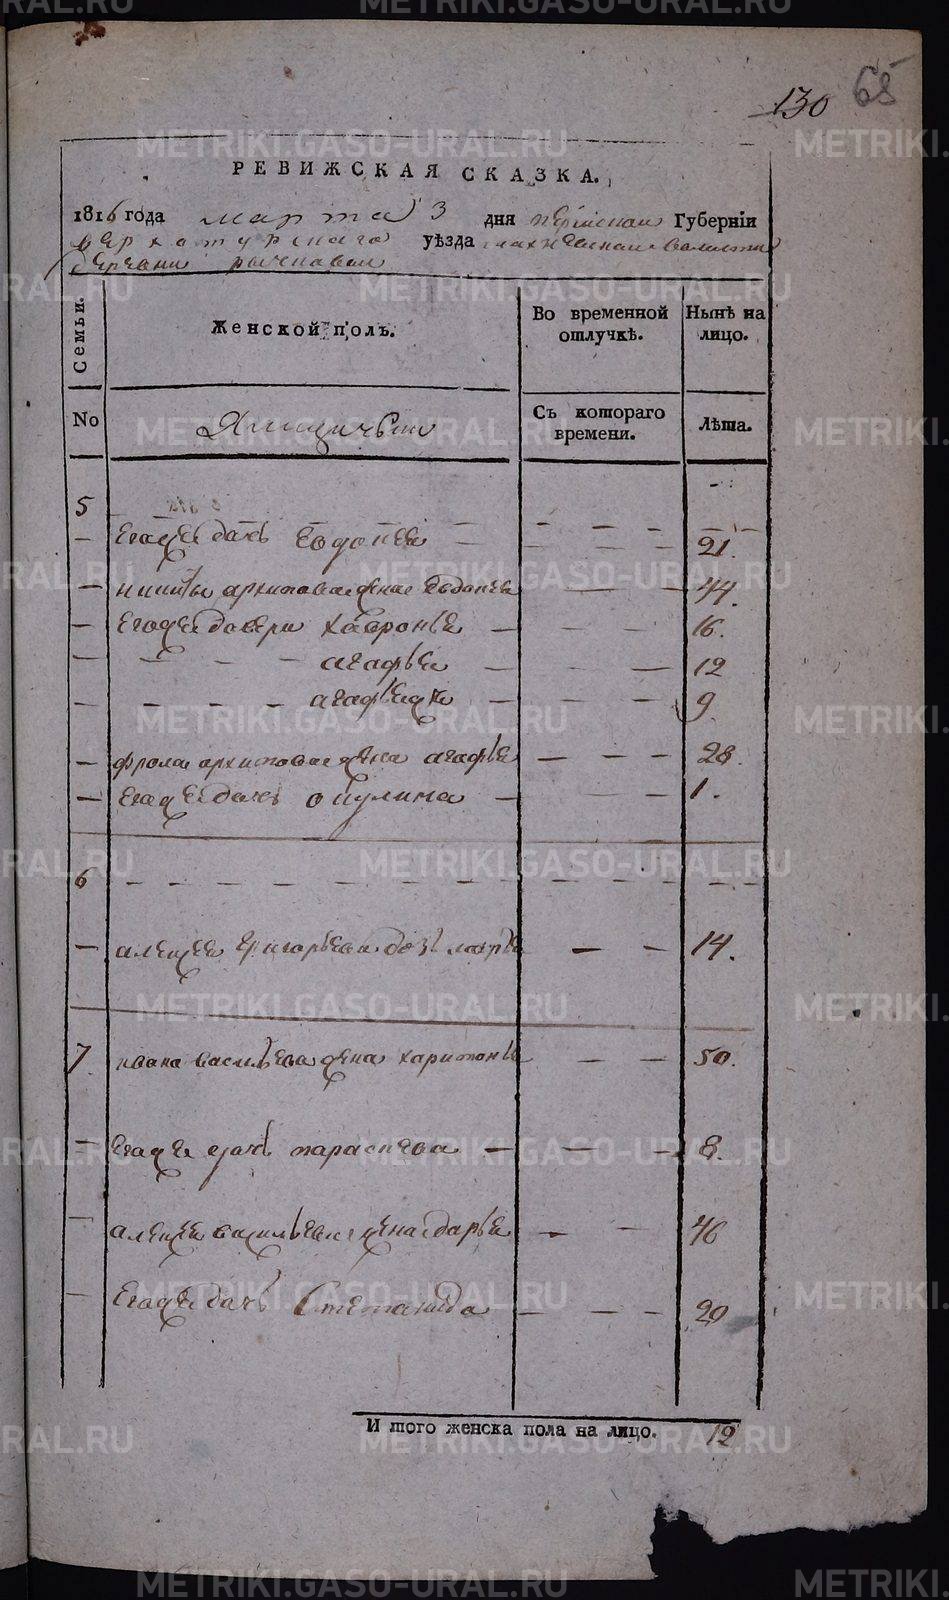 130 65
РЕВИЖСКАЯ СКАЗКА.
1816 года марта 3 дня пермской Губерніи
верхотурскаго уѣзда махневской волости
деревни
Семьи.
Женской полъ.
Во временной отлучкѣ.
Нынѣ на лицо.
No
Ямщичьи
Съ котораго времени.
Лѣта.
5
Егоже дочь Евдокея 21.
архипова жена Евдокея 44.
Егоже дочери Хавронья 16.
агафья 12
9.
фрола архипова жена агафья 28.
Егоже дочь окулина 1.
6
алексея григорьева дочь марья 14.
7 ивана васильева жена харитонья 50.
Егоже дочь парасковья 8.
алексея васильева жена дарья 46
Егоже дочь Степанида 20
И того женска пола на лицо. 12
METRIKI.GASO-URAL.RU